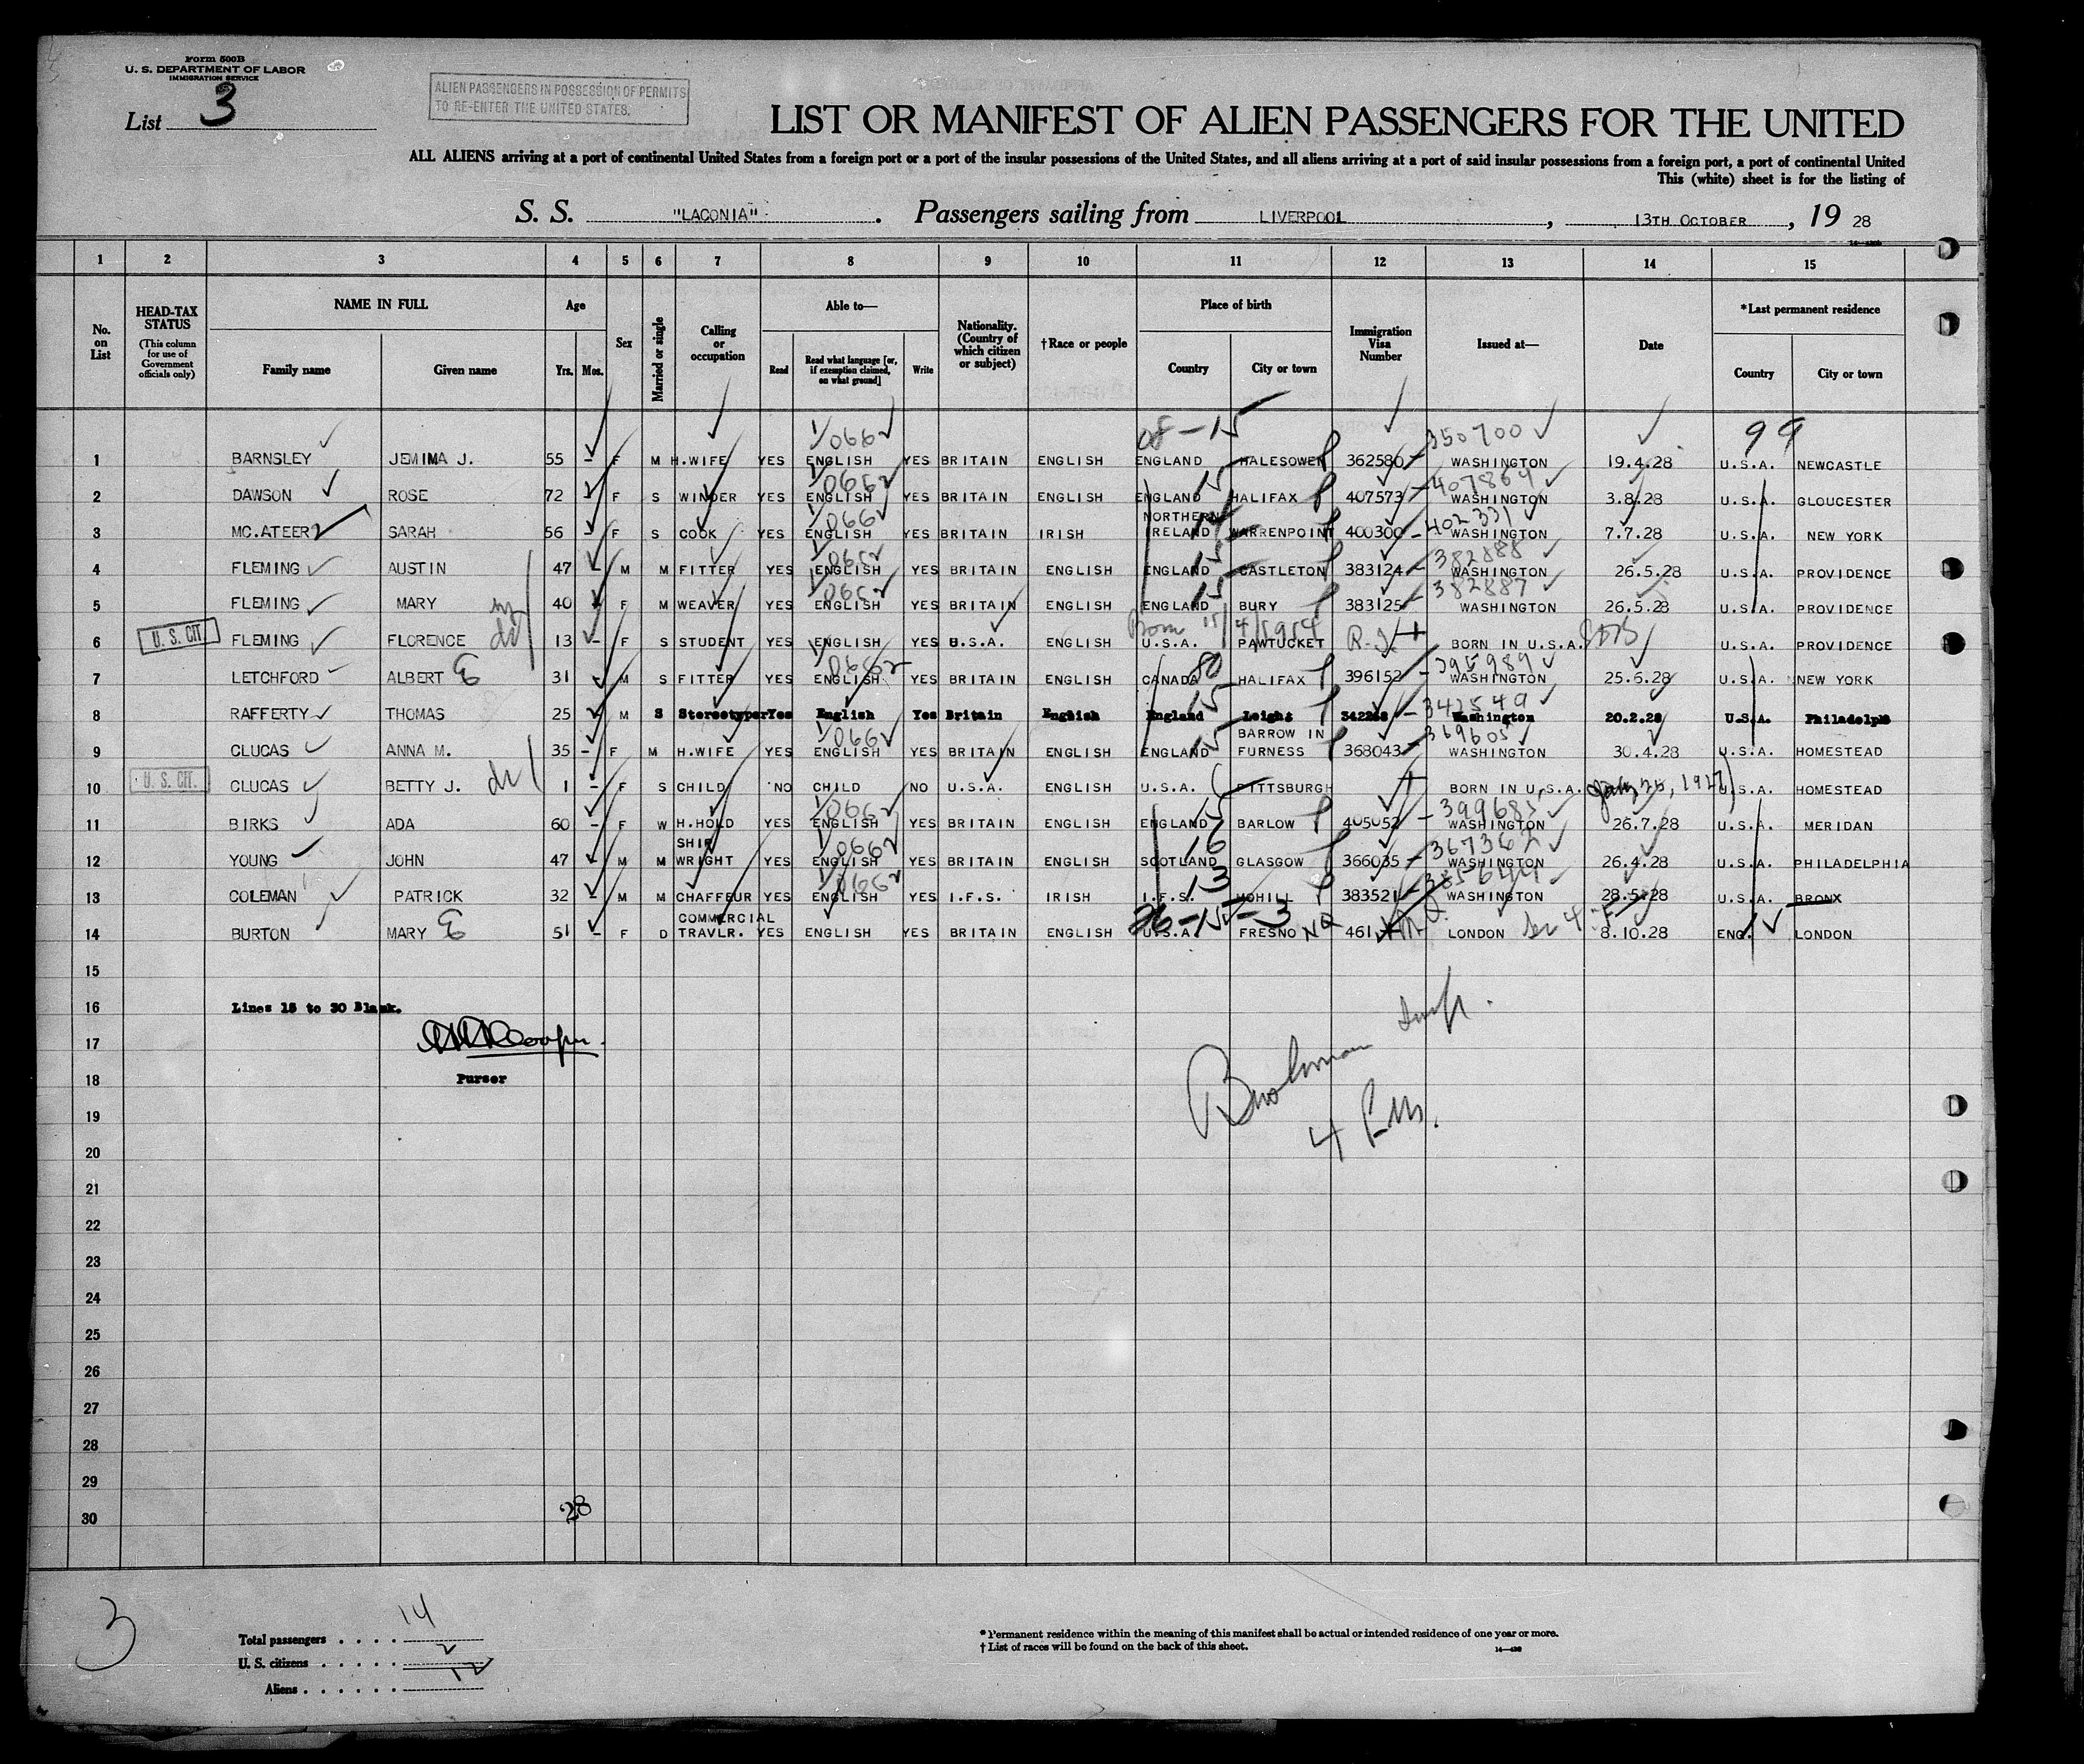 Form 500B
U. S. DEPARTMENT OF LABOR
IMMIGRATION SERVICE
List 3
ALIEN PASSENGERS IN POSSESSION OF PERMITS
TO RE-ENTER THE UNITED STATES.
LIST OR MANIFEST OF ALIEN PASSENGERS FOR THE UNITED
ALL ALIENS arriving at a port of continental United States from a foreign port or a port of the insular possessions of the United States, and all aliens arriving at a port of said insular possessions from a foreign port, a port of continental United
This (white) sheet is for the listing of
S. S. "LACONIA" . Passengers sailing from LIVERPOOL , 13TH OCTOBER , 19 28
1 2 3 4 5 6 7 8 9 10 11 12 13 14 15
No. on List
HEAD-TAX STATUS (This column for use of Government officials only)
NAME IN FULL
Family name Given name
Age
Yrs. Mos.
Sex
Married or single
Calling or occupation
Able to—
Read Read what language [or, if exemption claimed, on what ground] Write
Nationality. (Country of which citizen or subject)
†Race or people
Place of birth
Country City or town
Immigration Visa Number
Issued at—
Date
*Last permanent residence
Country City or town
08-15 350700 99
1 BARNSLEY JEMIMA J. 55 - F M H.WIFE YES ENGLISH YES BRITAIN ENGLISH ENGLAND HALESOWEN 362580 WASHINGTON 19.4.28 U.S.A. NEWCASTLE
15 407869
2 DAWSON ROSE 72 - F S WINDER YES ENGLISH YES BRITAIN ENGLISH ENGLAND HALIFAX 407573 WASHINGTON 3.8.28 U.S.A. GLOUCESTER
402331
3 MC.ATEER SARAH 56 - F S COOK YES ENGLISH YES BRITAIN IRISH NORTHERN IRELAND WARRENPOINT 400300 WASHINGTON 7.7.28 U.S.A. NEW YORK
15 382888
4 FLEMING AUSTIN 47 - M M FITTER YES ENGLISH YES BRITAIN ENGLISH ENGLAND CASTLETON 383124 WASHINGTON 26.5.28 U.S.A. PROVIDENCE
15 382887
5 FLEMING MARY 40 - F M WEAVER YES ENGLISH YES BRITAIN ENGLISH ENGLAND BURY 383125 WASHINGTON 26.5.28 U.S.A. PROVIDENCE
Born 15/4/1914
6 U. S. CIT. FLEMING FLORENCE 13 - F S STUDENT YES ENGLISH YES U.S.A. ENGLISH U.S.A. PAWTUCKET R.I. BORN IN U.S.A. U.S.A. PROVIDENCE
80 395989
7 LETCHFORD ALBERT E 31 - M S FITTER YES ENGLISH YES BRITAIN ENGLISH CANADA HALIFAX 396152 WASHINGTON 25.6.28 U.S.A. NEW YORK
15 342549
8 RAFFERTY THOMAS 25 - M S Stereotyper Yes English Yes Britain English England Leight Washington 20.2.28 U.S.A. Philadelph
15 369605
9 CLUCAS ANNA M. 35 - F M H.WIFE YES ENGLISH YES BRITAIN ENGLISH ENGLAND BARROW IN FURNESS 368043 WASHINGTON 30.4.28 U.S.A. HOMESTEAD
10 U. S. CIT. CLUCAS BETTY J. 1 - F S CHILD NO CHILD NO U.S.A. ENGLISH U.S.A. PITTSBURGH BORN IN U.S.A. U.S.A. HOMESTEAD
15 399685
11 BIRKS ADA 60 - F W H.HOLD YES ENGLISH YES BRITAIN ENGLISH ENGLAND BARLOW 405052 WASHINGTON 26.7.28 U.S.A. MERIDAN
16 367362
12 YOUNG JOHN 47 - M M SHIP WRIGHT YES ENGLISH YES BRITAIN ENGLISH SCOTLAND GLASGOW 366035 WASHINGTON 26.4.28 U.S.A. PHILADELPHIA
13
13 COLEMAN PATRICK 32 - M M CHAFFEUR YES ENGLISH YES I.F.S. IRISH I.F.S. MOHILL 383521 WASHINGTON 28.5.28 U.S.A. BRONX
14 BURTON MARY E 51 - F D COMMERCIAL TRAVLR. YES ENGLISH YES BRITAIN ENGLISH U.S.A. FRESNO LONDON 8.10.28 ENG. LONDON
15
16 Lines 15 to 30 Blank.
17
18 Purser
19
20
21
22
23
24
25
26
27
28
29
30
28
3
Total passengers . . . . 14
U. S. citizens . . . . . 2
Aliens . . . . . . 12
* Permanent residence within the meaning of this manifest shall be actual or intended residence of one year or more.
† List of races will be found on the back of this sheet.